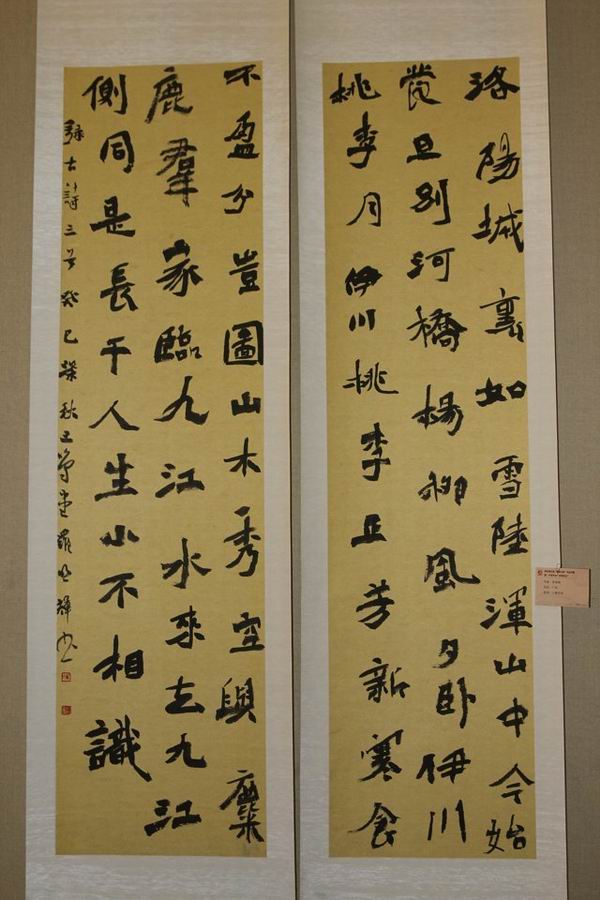 洛陽城裏如雪陸渾山中今始
發旦別河橋楊柳風夕卧伊川
桃李月伊川桃李正芳新寒食
不盈分豈圖山木秀空與麋
鹿羣家臨九江水來去九江
側同是長干人生小不相識
録古詩三首癸巳秋書